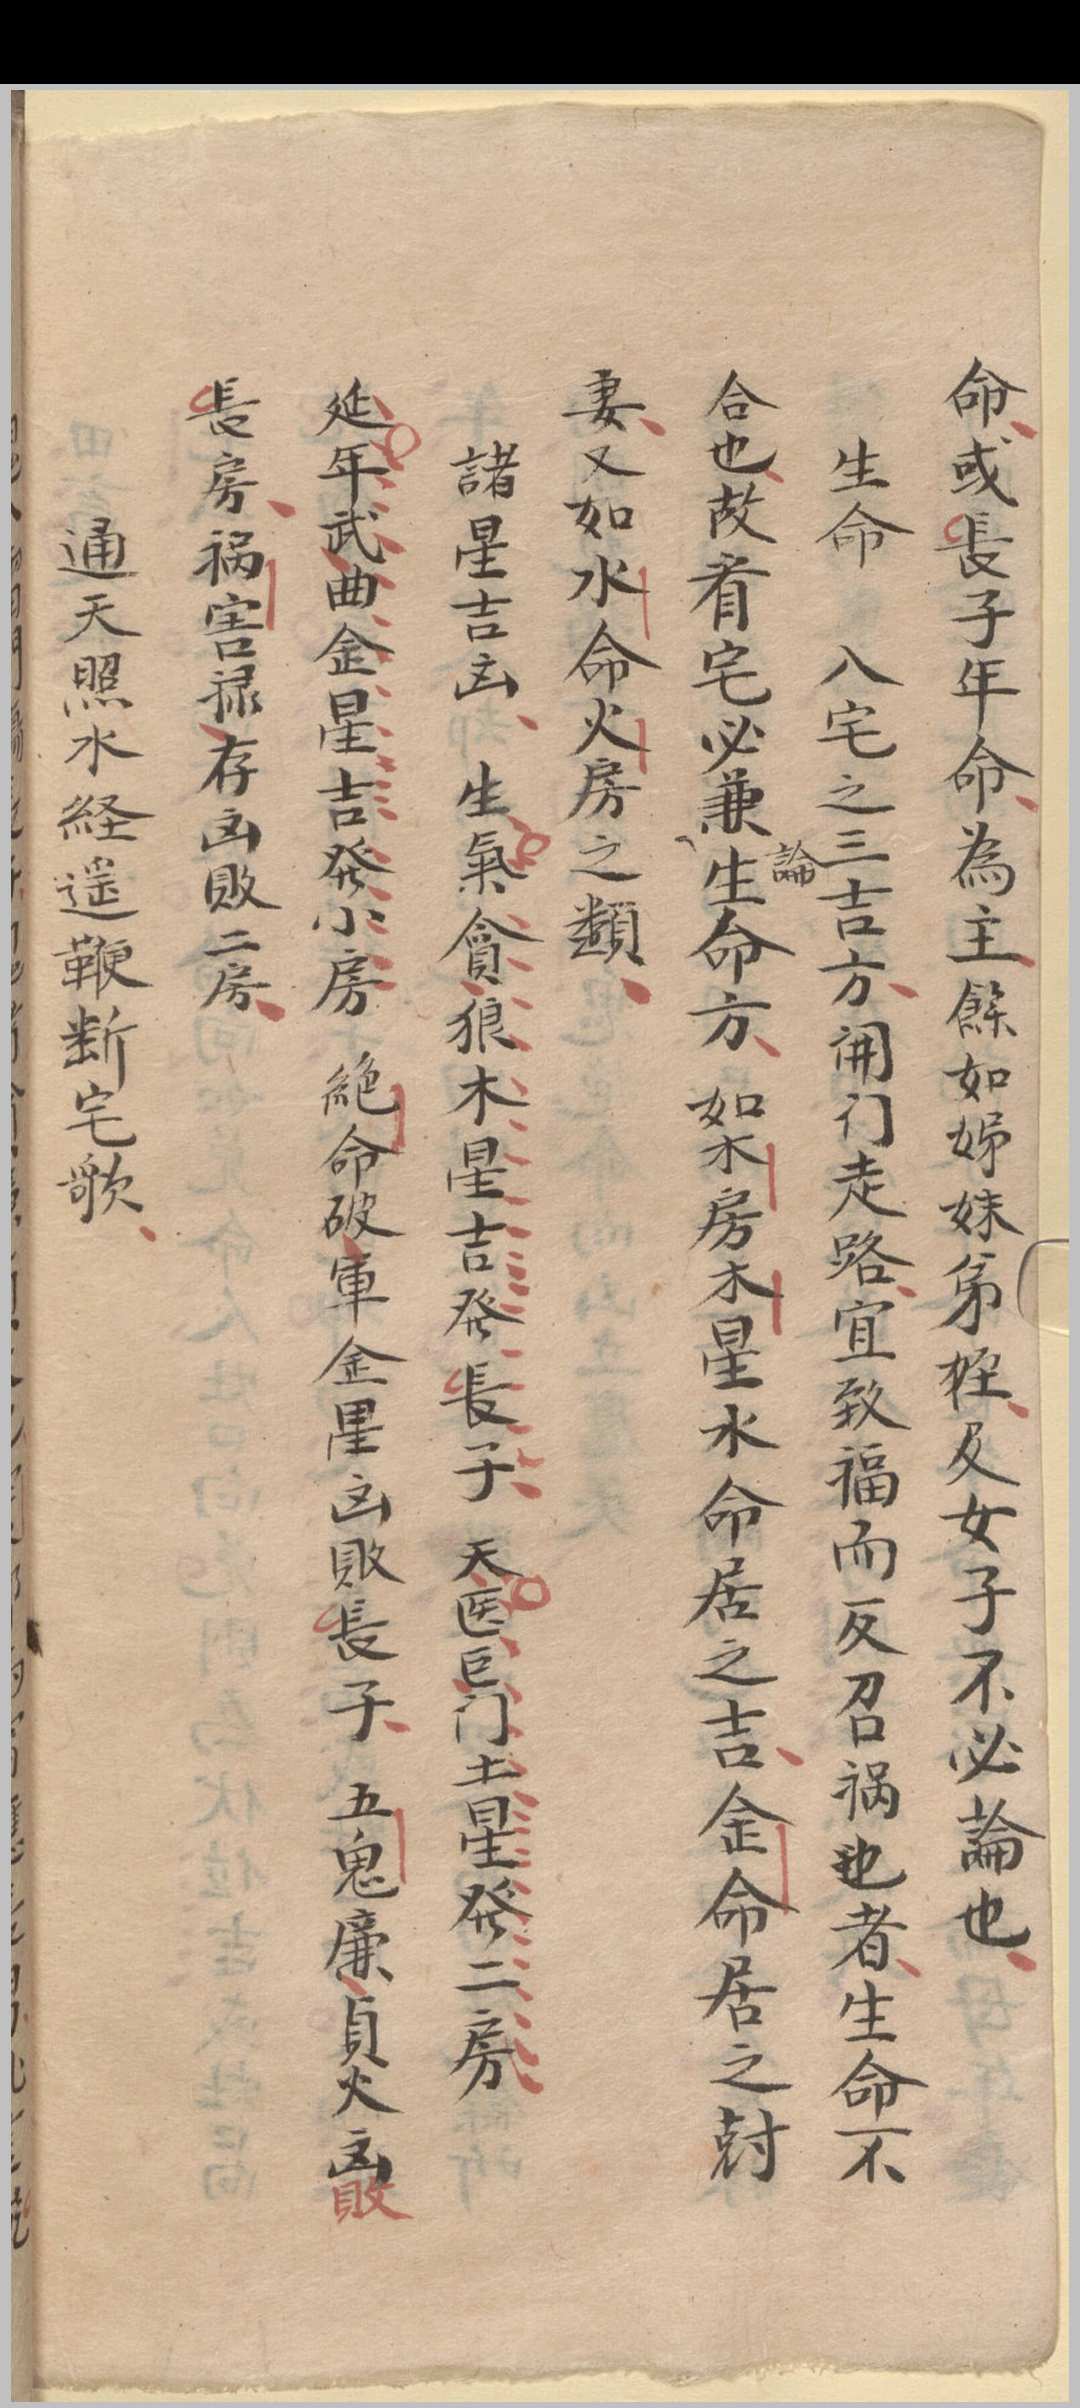 命或長子年命為主餘如姊妹弟姪及女子不必論也
生命　八宅之三吉方開门走路宜致福而反召祸也者生命不
合也故看宅必兼論生命方　如木房木星水命居之吉金命居之尅
妻又如水命火房之類
諸星吉凶　生氣貪狼木星吉発長子　天医巨门土星発二房
延年武曲金星吉発小房　絶命破軍金星凶敗長子　五鬼廉貞火凶敗
長房祸害禄存凶敗二房
通天照水経遥鞭断宅歌